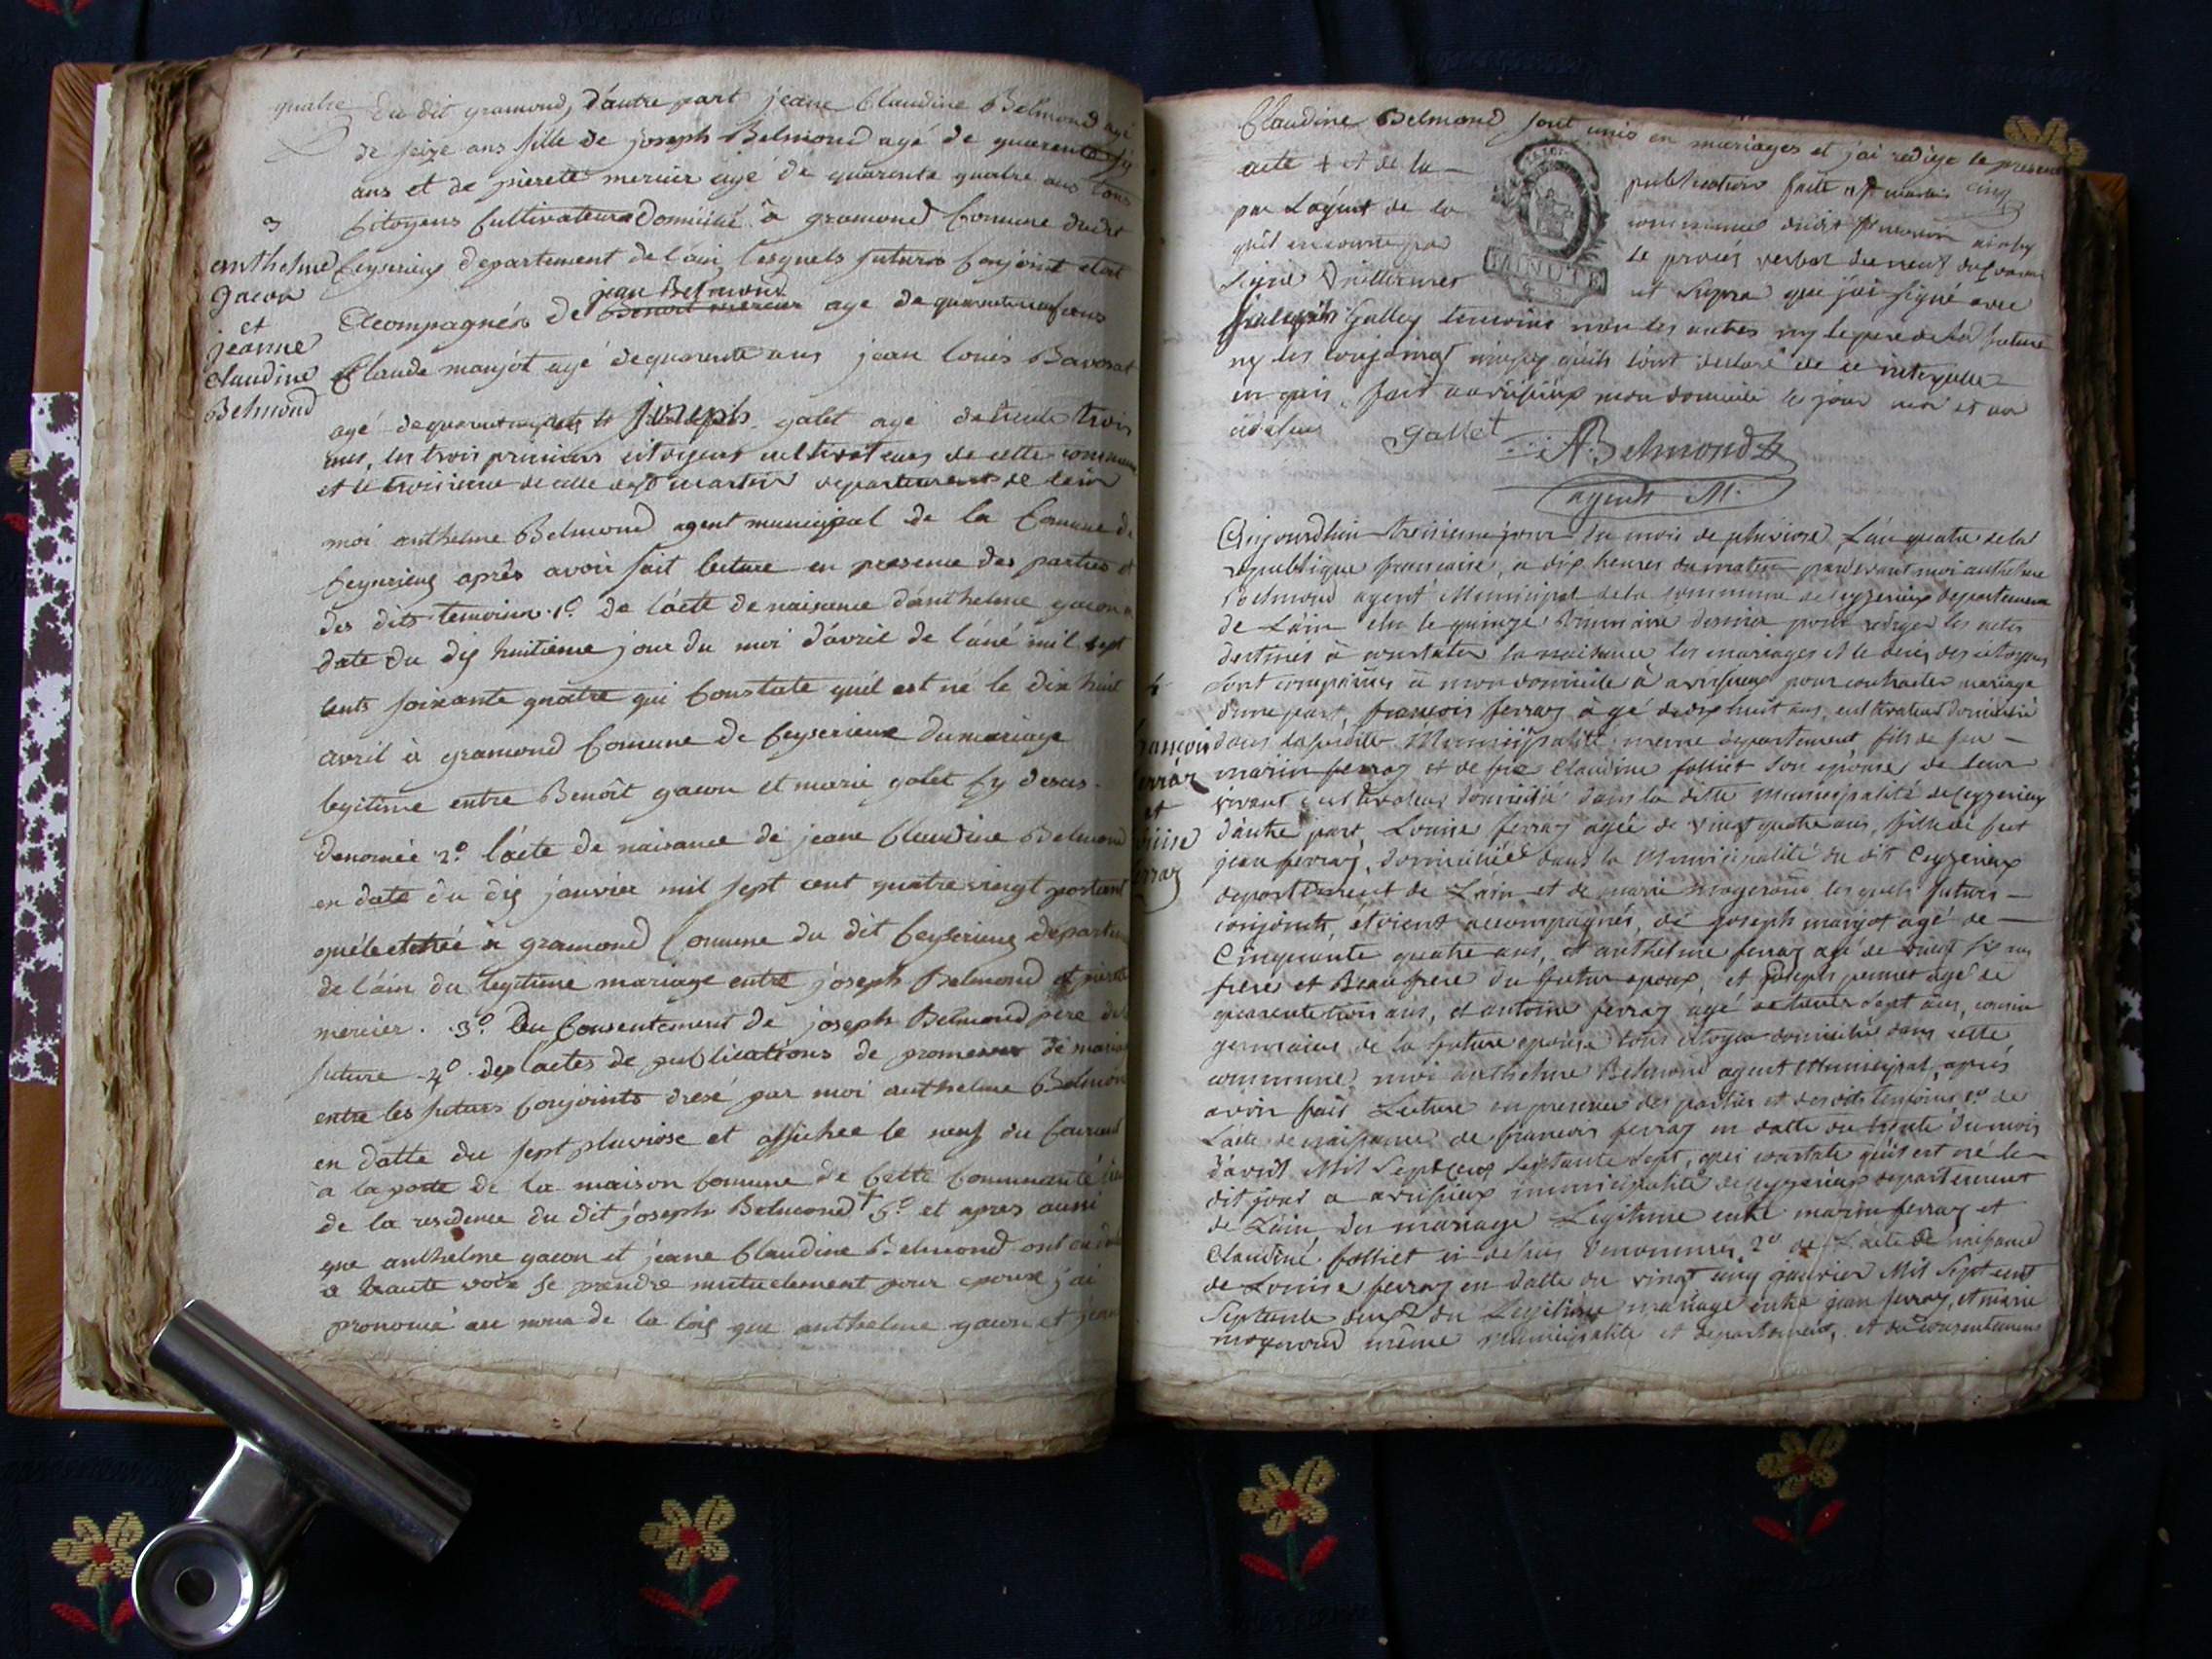 quatre
du dit gramond, d'autre part jeane Claudine Belmond agé
de seize ans fille de joseph Belmond agé de quarente six
ans et de pierete mercier agé de quarente quatre ans tous
Citoyens Cultivateurs domicilié à gramond Comune dudit
Ceyserieux departement de l'ain, lesquels futurs Conjoint etant
jean Belmond
Acompagnés de Benoit mercier age de quarente neuf ans
Claude manjot agé de quarente ans jean louis Bavosat
agé de quarent et joseph galet agé de trente trois
ans, les trois premiers citoyens cultivateurs de cette commune
et le troisieme de celle de st martin departement de lain
moi anthelme Belmond agent municipal de la Comune de
Ceyserieux après avoir fait lecture en presence des parties et
des dits temoins. 1º. de l'acte de naisance d'anthelme gacon
date du dix huitieme jour du moi d'avril de l'ané mil sept
cents soixante quatre qui Constate qu'il est né le dix huit
avril à gramond Comune de Ceyserieux du mariage
legitime entre Benoît gacon et marie galet Cy desus
denomée 2º. l'acte de naisance de jeane Claudine Belmond
en date du dix janvier mil sept cent quatre vingt portant
qu'éle etné à gramond Comune du dit Ceyserieux departem
de l'ain du legitime mariage entre joseph Belmond et pierete
mercier. 3º. Du Consentement de joseph Belmond pere de la
future 4º. des actes de publications de promesses de mariage
entre les futurs Conjoints dresé par moi anthelme Belmond
en datte du sept pluviose et affichee le neuf du Courant
a la porte de la maison Comune de Cette Communauté lieu
de la residence du dit joseph Belmond + 5º. et apres aussi
que anthelme gacon et jeane Claudine Belmond ont
a haute voix se prendre mutuelement pour epoux j'ai
prononcé au nom de la loix que anthelme gacon et jeane
3
anthelme
Gacon
et
jeanne
Claudine
Belmond
Claudine Belmond sont unis en mariages et j'ai redigé le present
acte + et de la publication faite a st martin
par l'agent de la commune dudit
le procés verbal du neuf du courant
signé et supra que j'ai signé avec
joseph Galley temoins non les autres ny le pere de la future
ny les conjoints qu'ils l'ont declaré de ce
fait mon domicile le jour mois et an
MINUTE
Gallet
A. Belmond
agent M.
Aujourdhui treisieme jour du mois de pluviose L'an quatre de la
republique francaise, a dix heures du matin pardevant moi anthelme
Belmond agent Municipal de la commune de Ceyzerieux departement
de Lain elu le quinze Brumaire dernier pour rediger les actes
destinés à constater la naissance les mariages et le décès des citoyens
sont comparus a mon domicile à avrisieux pour contracter mariage
d'une part, françois ferraz agé de dix huit ans, cultivateur domicilié
dans la Municipalité même departement fils de feu
marin ferraz et de feue Claudine folliet son epouse, de leur
vivant cultivateurs domicilié dans la ditte Municipalité de Ceyzerieux
d'autre part, Louise ferraz agée de vingt quatre ans, fille de feu
jean ferraz, domiciliée dans la Municipalité du dit Ceyzerieux
departement de Lain et de marie les quels futurs
conjoints, etoient accompagnés, de joseph manjot agé de
Cinquante quatre ans, d'anthelme ferraz agé de vingt six ans
frere et Beaufrere du futur epoux, et joseph pennet agé de
quarente trois ans, et antoine ferraz agé de trente sept ans, cousin
germains de la future epouse tous citoyen domicilié dans cette
commune, moi anthelme Belmond agent Municipal, après
avoir fait Lecture en presence des parties et des dits temoins 1º de
L'acte de naissance de francois ferraz en datte du trente du mois
d'avril Mil Sept Cens Septante Sept, qui constate qu'il est né le
dit jour a avrisieux municipalité de Ceyzerieux departement
de Lain du mariage Legitime entre marin ferraz et
Claudine folliet ci-dessus denommés, 2º de L'acte de naissance
de Louise ferraz en datte du vingt cinq janvier Mil Sept cent
Septante deux du Legitime mariage entre jean ferraz, et marie
même municipalité et departement, et du consentement
4
francois
ferraz
et
Louise
ferraz